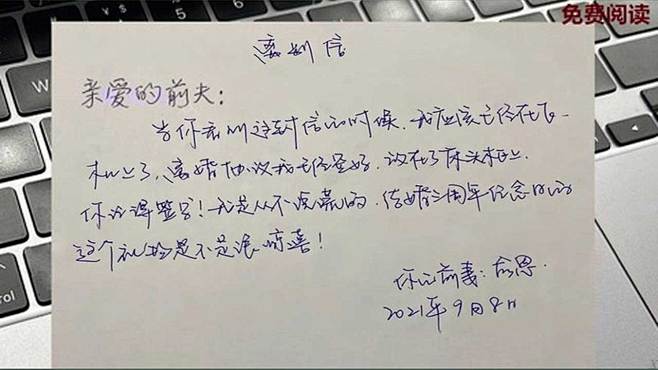 免费阅读
离别信
亲爱的前夫：
当你看到这封信的时候，我应该已经在飞
机上了，离婚协议我已经签好，放在了床头柜上
你记得签字！我是从不说谎的，结婚三周年纪念日的
这个礼物是不是很惊喜！
你的前妻：
2021年9月8日
control